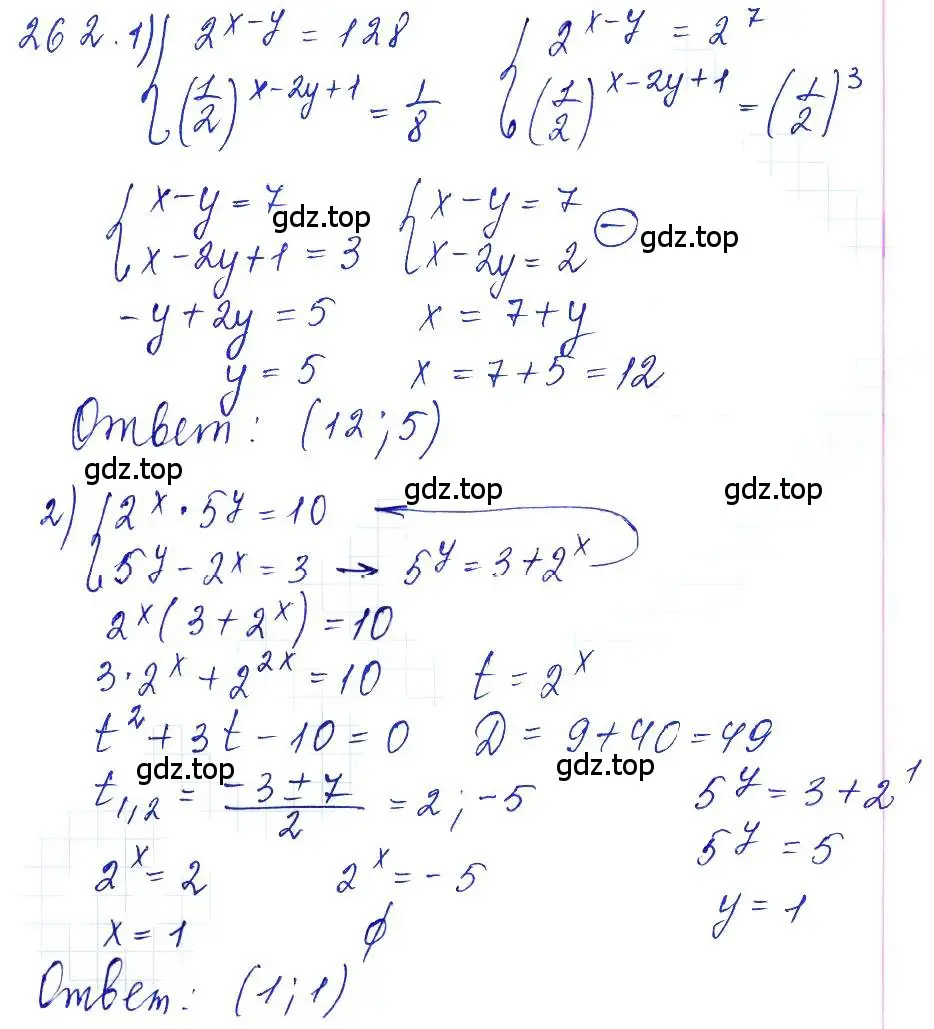 262. 1) { 2^{x-y} = 128   { 2^{x-y} = 2^7
(1/2)^{x-2y+1} = 1/8   (1/2)^{x-2y+1} = (1/2)^3
{ x-y = 7   { x-y = 7
gdz.top   ⊖ gdz.top
x-2y+1 = 3   x-2y = 2
-y+2y = 5   x = 7+y
y = 5   x = 7+5 = 12
Ответ: (12; 5)
gdz.top   gdz.top   gdz.top
2) { 2^x · 5^y = 10
5^y - 2^x = 3 → 5^y = 3+2^x
2^x(3+2^x) = 10
3·2^x + 2^{2x} = 10   t = 2^x
t^2 + 3t - 10 = 0   D = 9+40 = 49
gdz.top   gdz.top
t_{1,2} = (-3±7)/2 = 2; -5   5^y = 3+2^1
5^y = 5
2^x = 2   2^x = -5
y = 1
x = 1   ∅
Ответ: (1; 1)